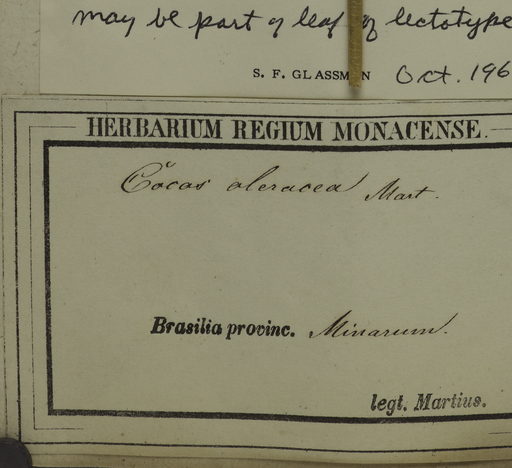 may be part of leaf of lectotype
S. F. GLASSMAN Oct. 196
HERBARIUM REGIUM MONACENSE.
Cŏcos oleracea Mart.
Brasilia provinc. Minarum.
legt. Martius.